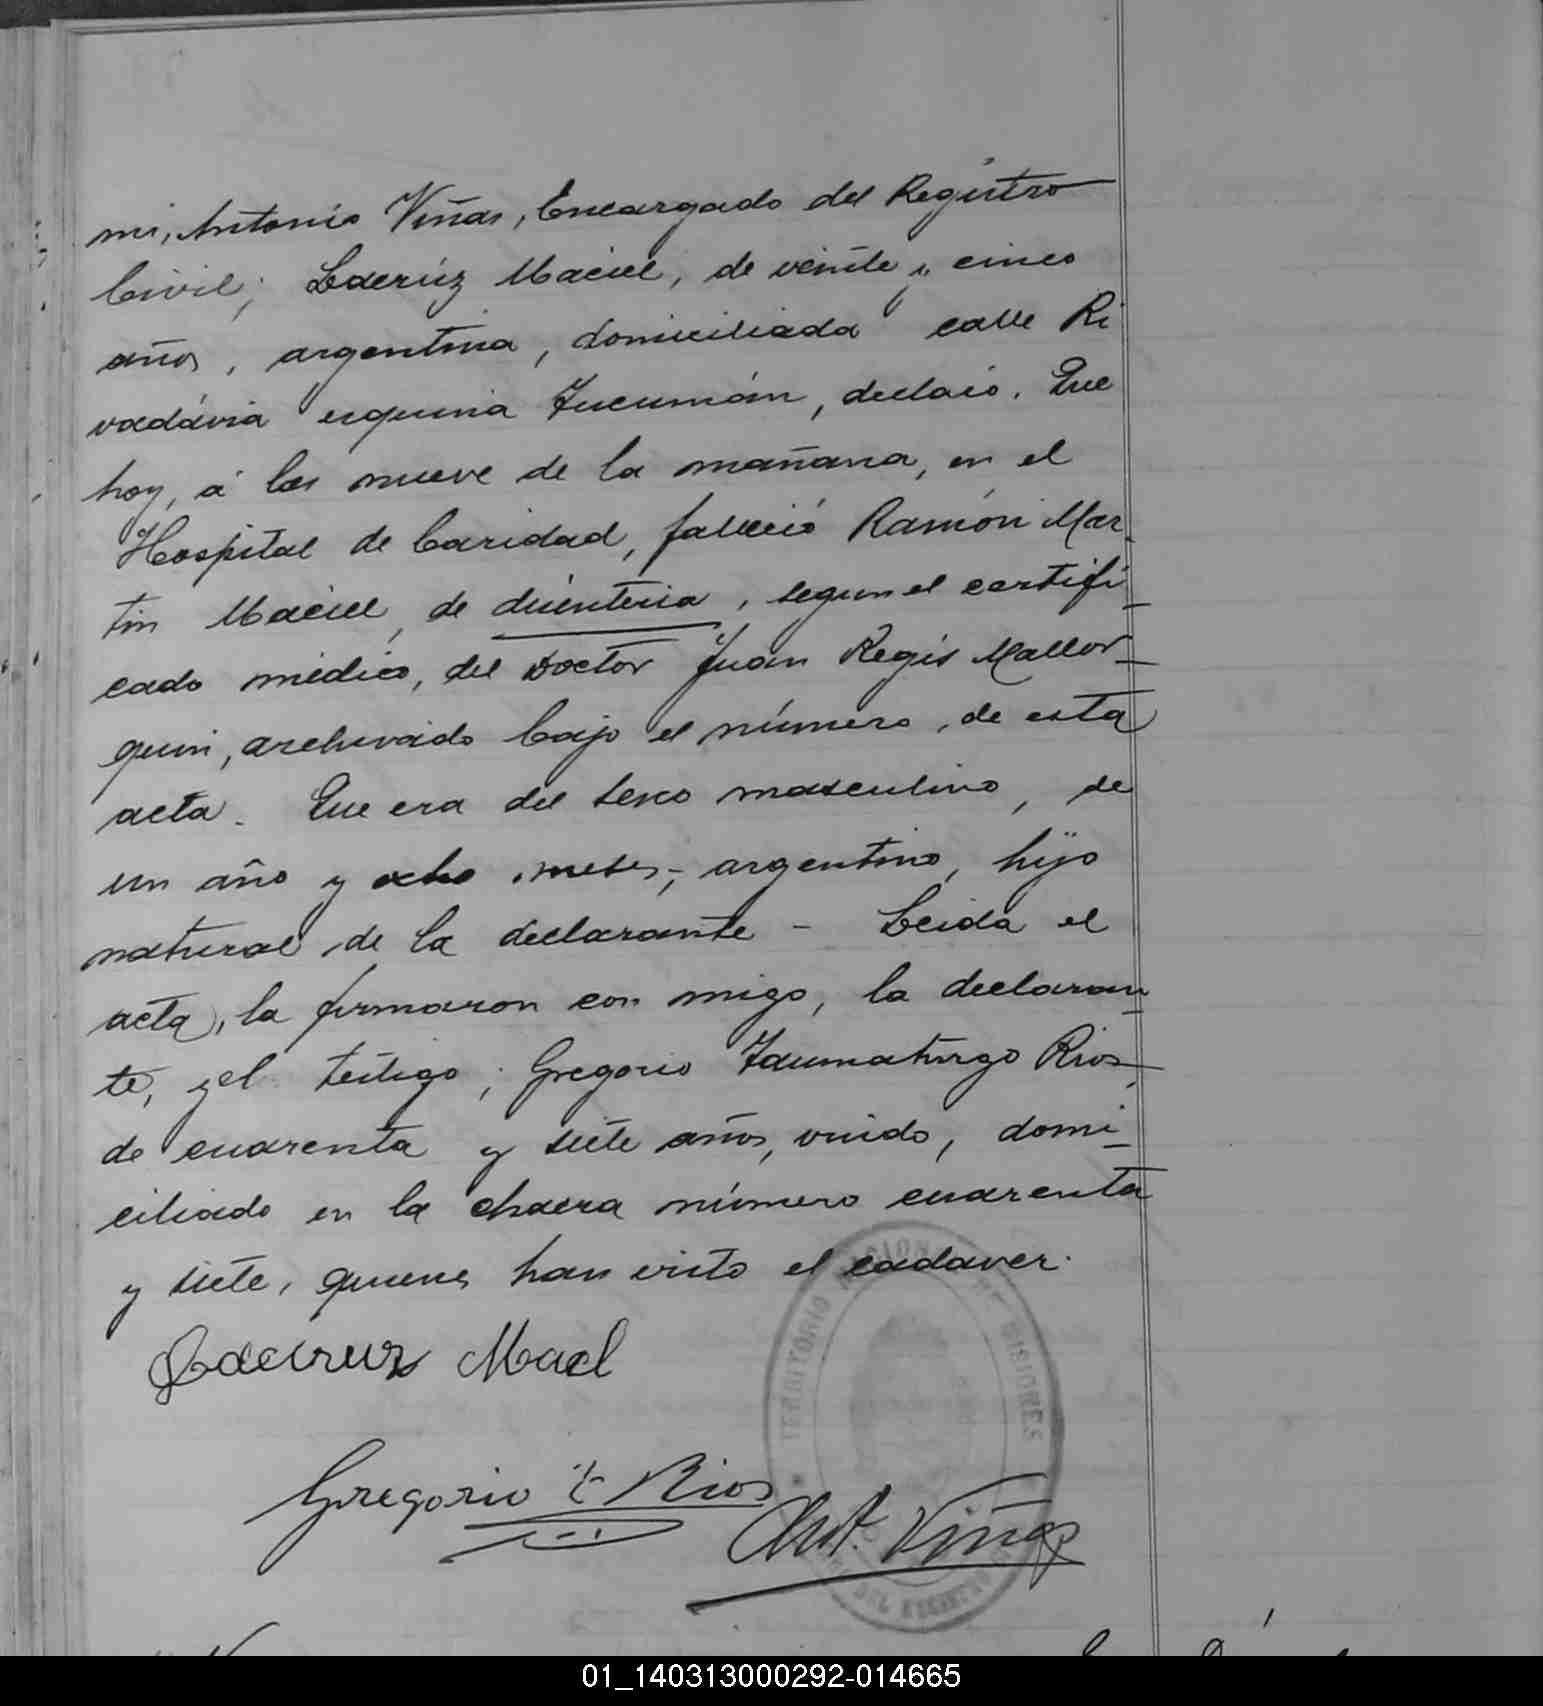 mi, Antonio Viñas, Encargado del Registro
Civil; Lacrúz Maciel, de veinte y cinco
años, argentina, domiciliada calle Ri
vadávia esquina Tucumán, declaró. Que
hoy, á las nueve de la mañana, en el
Hospital de Caridad, falleció Ramón Mar-
tin Maciel, de disenteria, segun el certifi-
cado médico, del Doctor Juan Regis Mallor-
quin, archivado bajo el número, de esta
acta. Que era del sexo masculino, de
un año y ocho meses, argentino, hijo
natural de la declarante - Leida el
acta, la firmaron con migo, la declaran-
te, y el testigo; Gregorio Taumaturgo Rios,
de cuarenta y siete años, viudo, domi-
ciliado en la chacra número cuarenta
y siete, quienes han visto el cadaver.
Lacruz Maciel
Gregorio T Rios
Ant. Viñas
TERRITORIO NACIONAL DE MISIONES
DEL REGISTRO
01_140313000292-014665